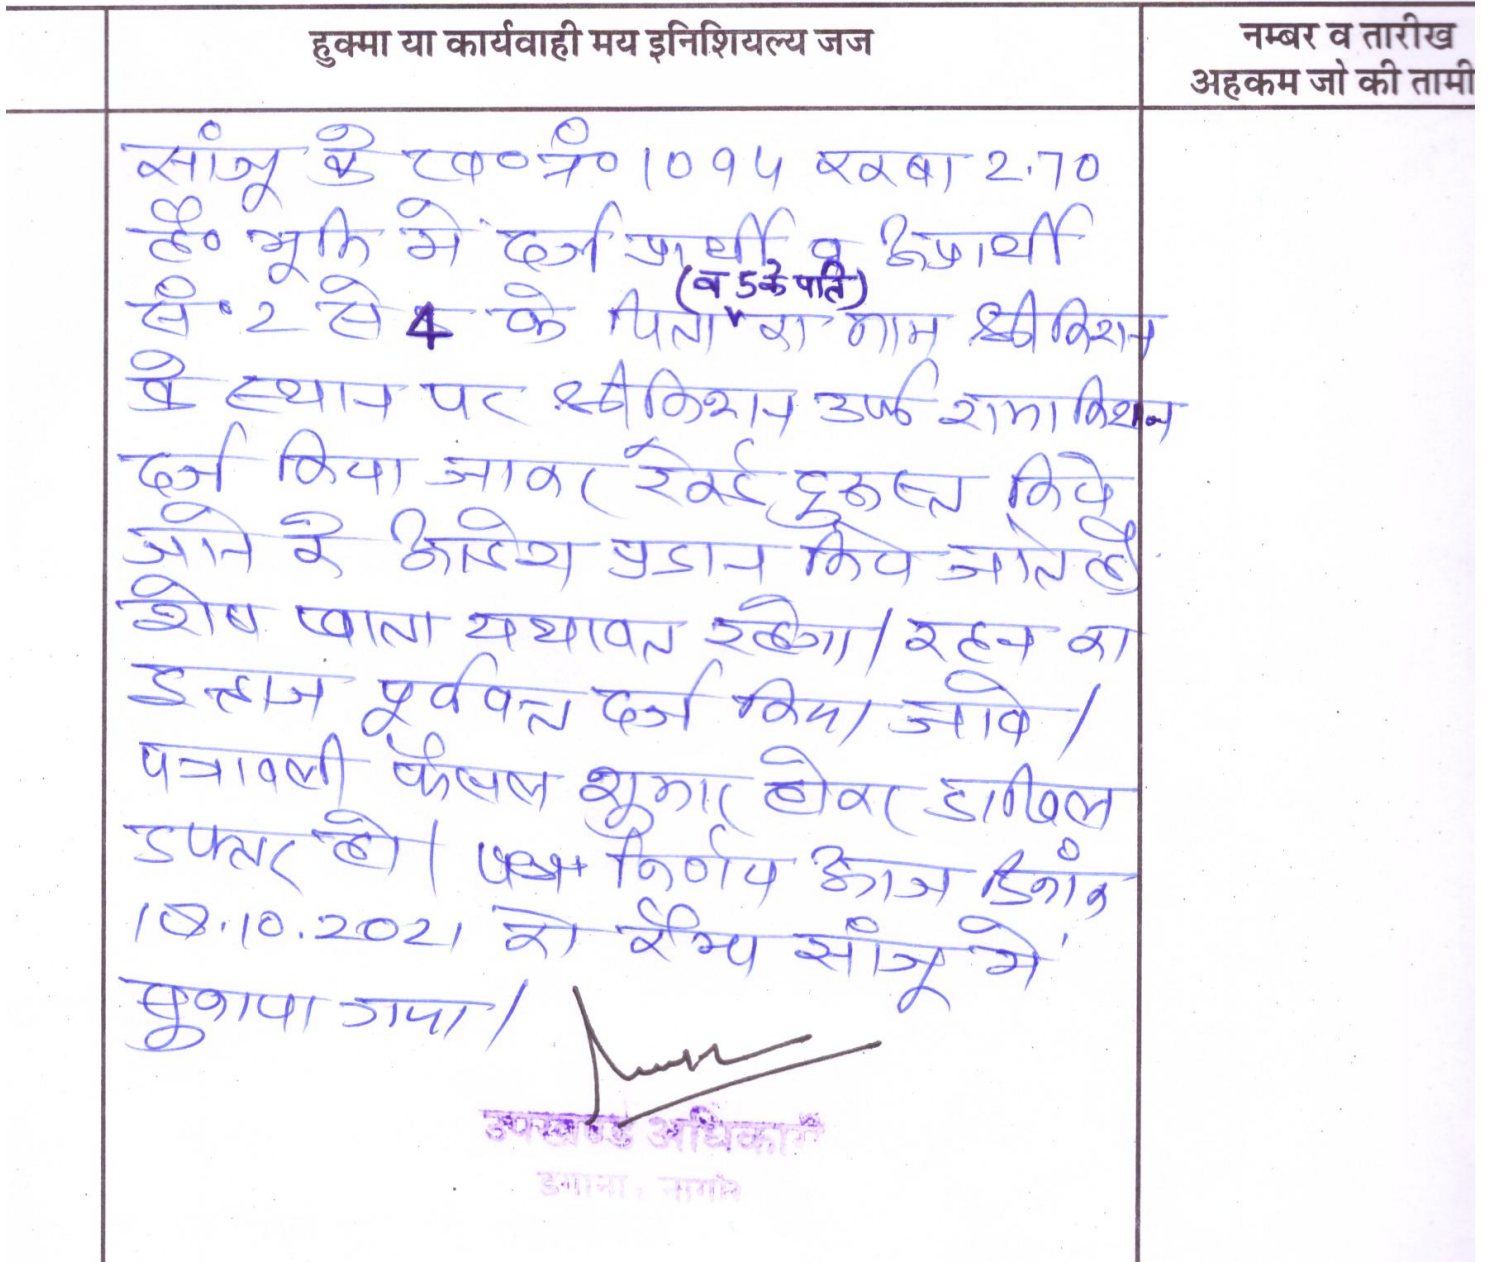 हुक्मा या कार्यवाही मय इनिशियल्य जज
नम्बर व तारीख
अहकम जो की तामी
सांजू के ख०नं० 1094 रकबा 2.70
है० भूमि में दर्ज प्रार्थी व अप्रार्थी
(व 5 के पति)
सं. 2 से 4 के पिता का नाम श्रीकिशन
के स्थान पर श्रीकिशन उर्फ रामाकिशन
दर्ज किया जाकर रेकर्ड दुरूस्त किये
जाने के आदेश प्रदान किये जाते है
शेष खाता यथावत रहेगा। रहन का
इन्द्राज पूर्ववत दर्ज किया जावे।
पत्रावली फैसल शुमार होकर दाखिल
दफ्तर हो। निर्णय आज दिनांक
18.10.2021 को कैम्प सांजू में
सुनाया गया।
उपखण्ड अधिकारी
डेगाना, नागौर